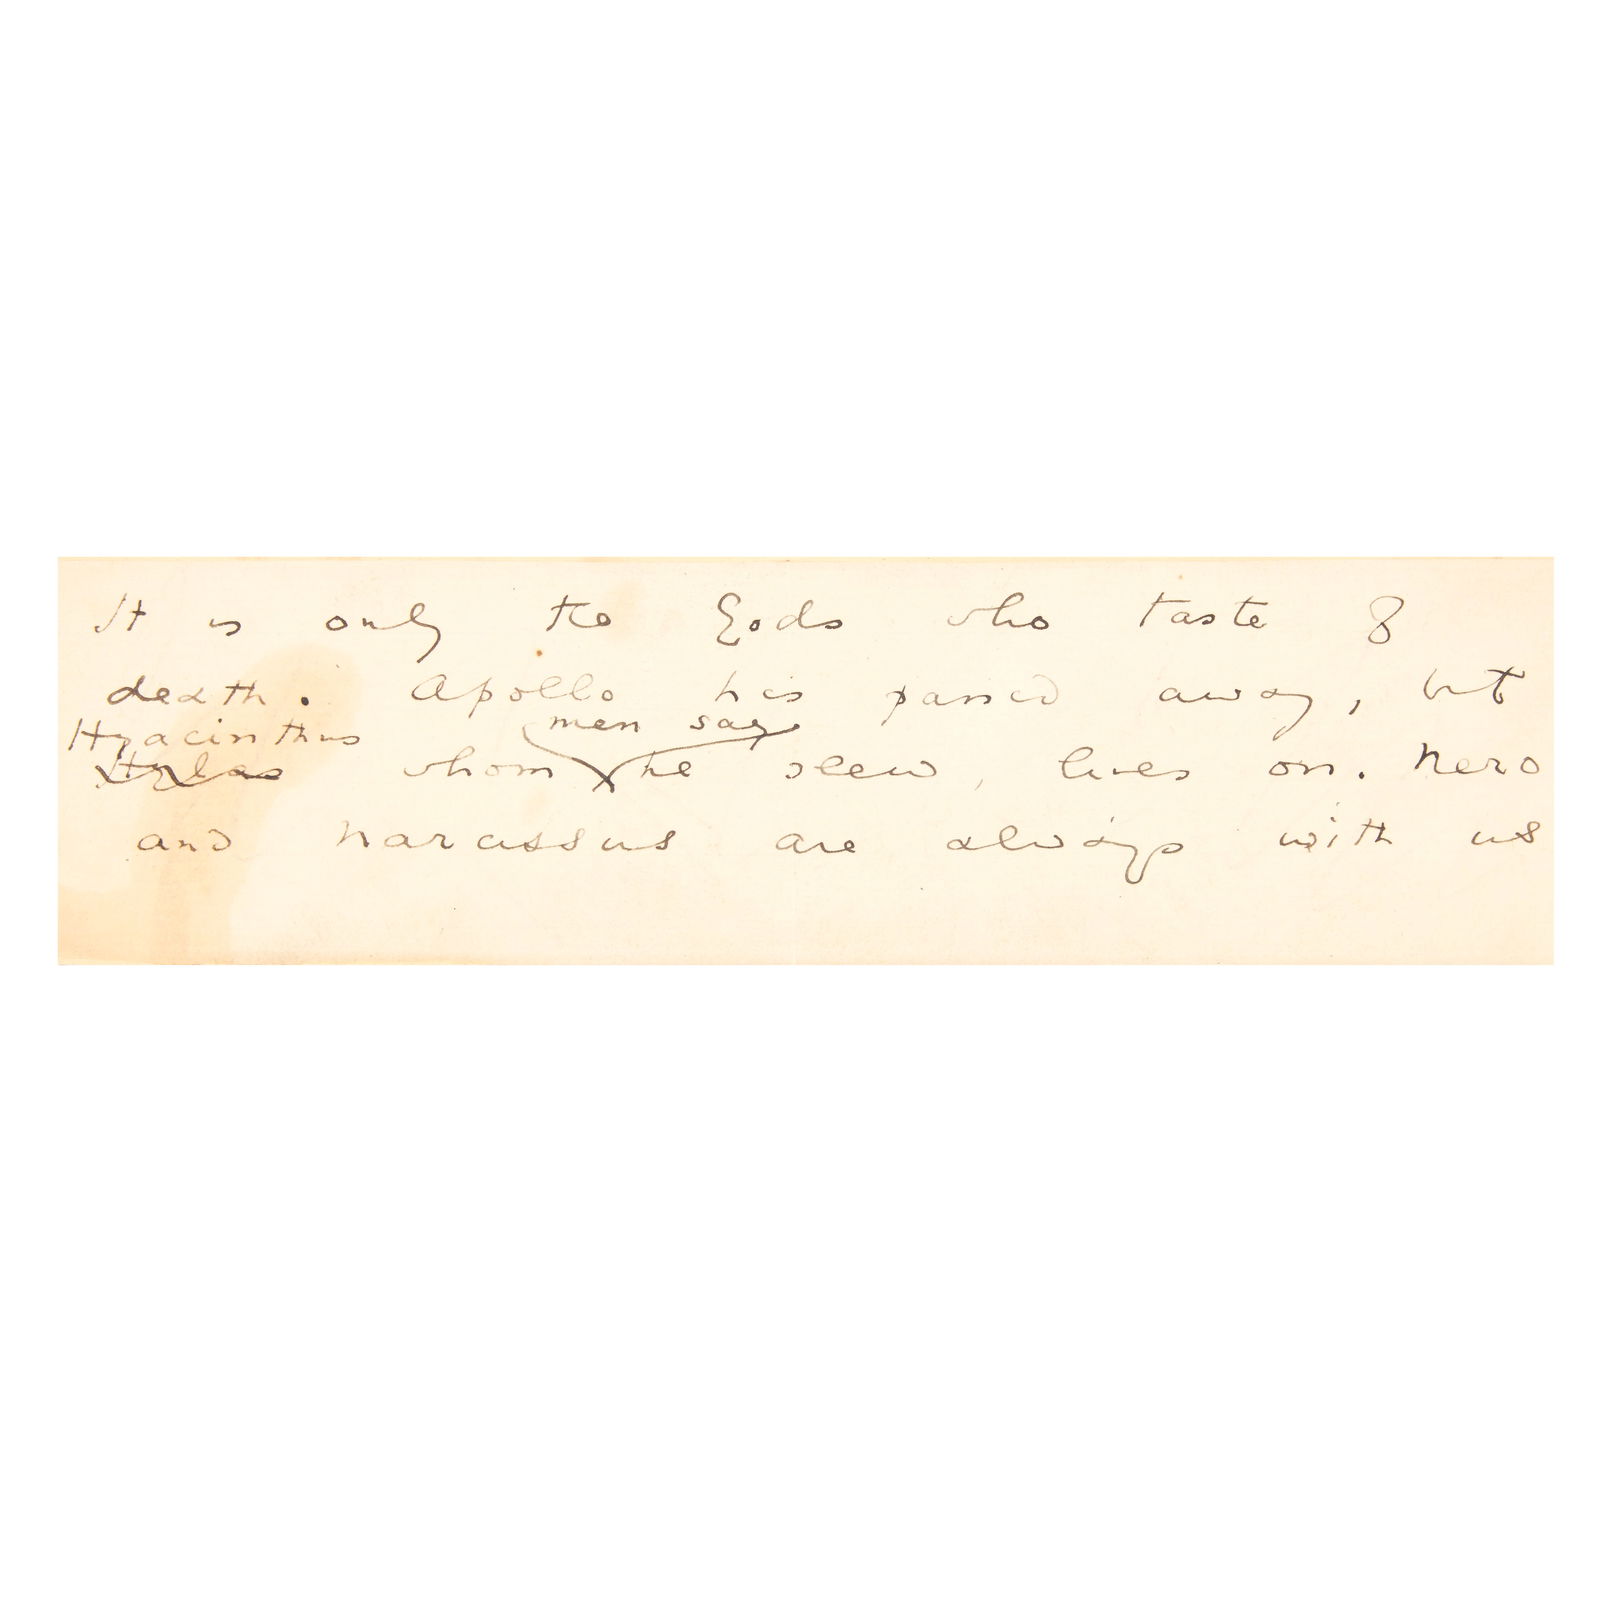 It is only the Gods who taste of
death. Apollo has passed away, but
Hyacinthus men say
Hylas whom he slew, lives on. Nero
and Narcissus are always with us